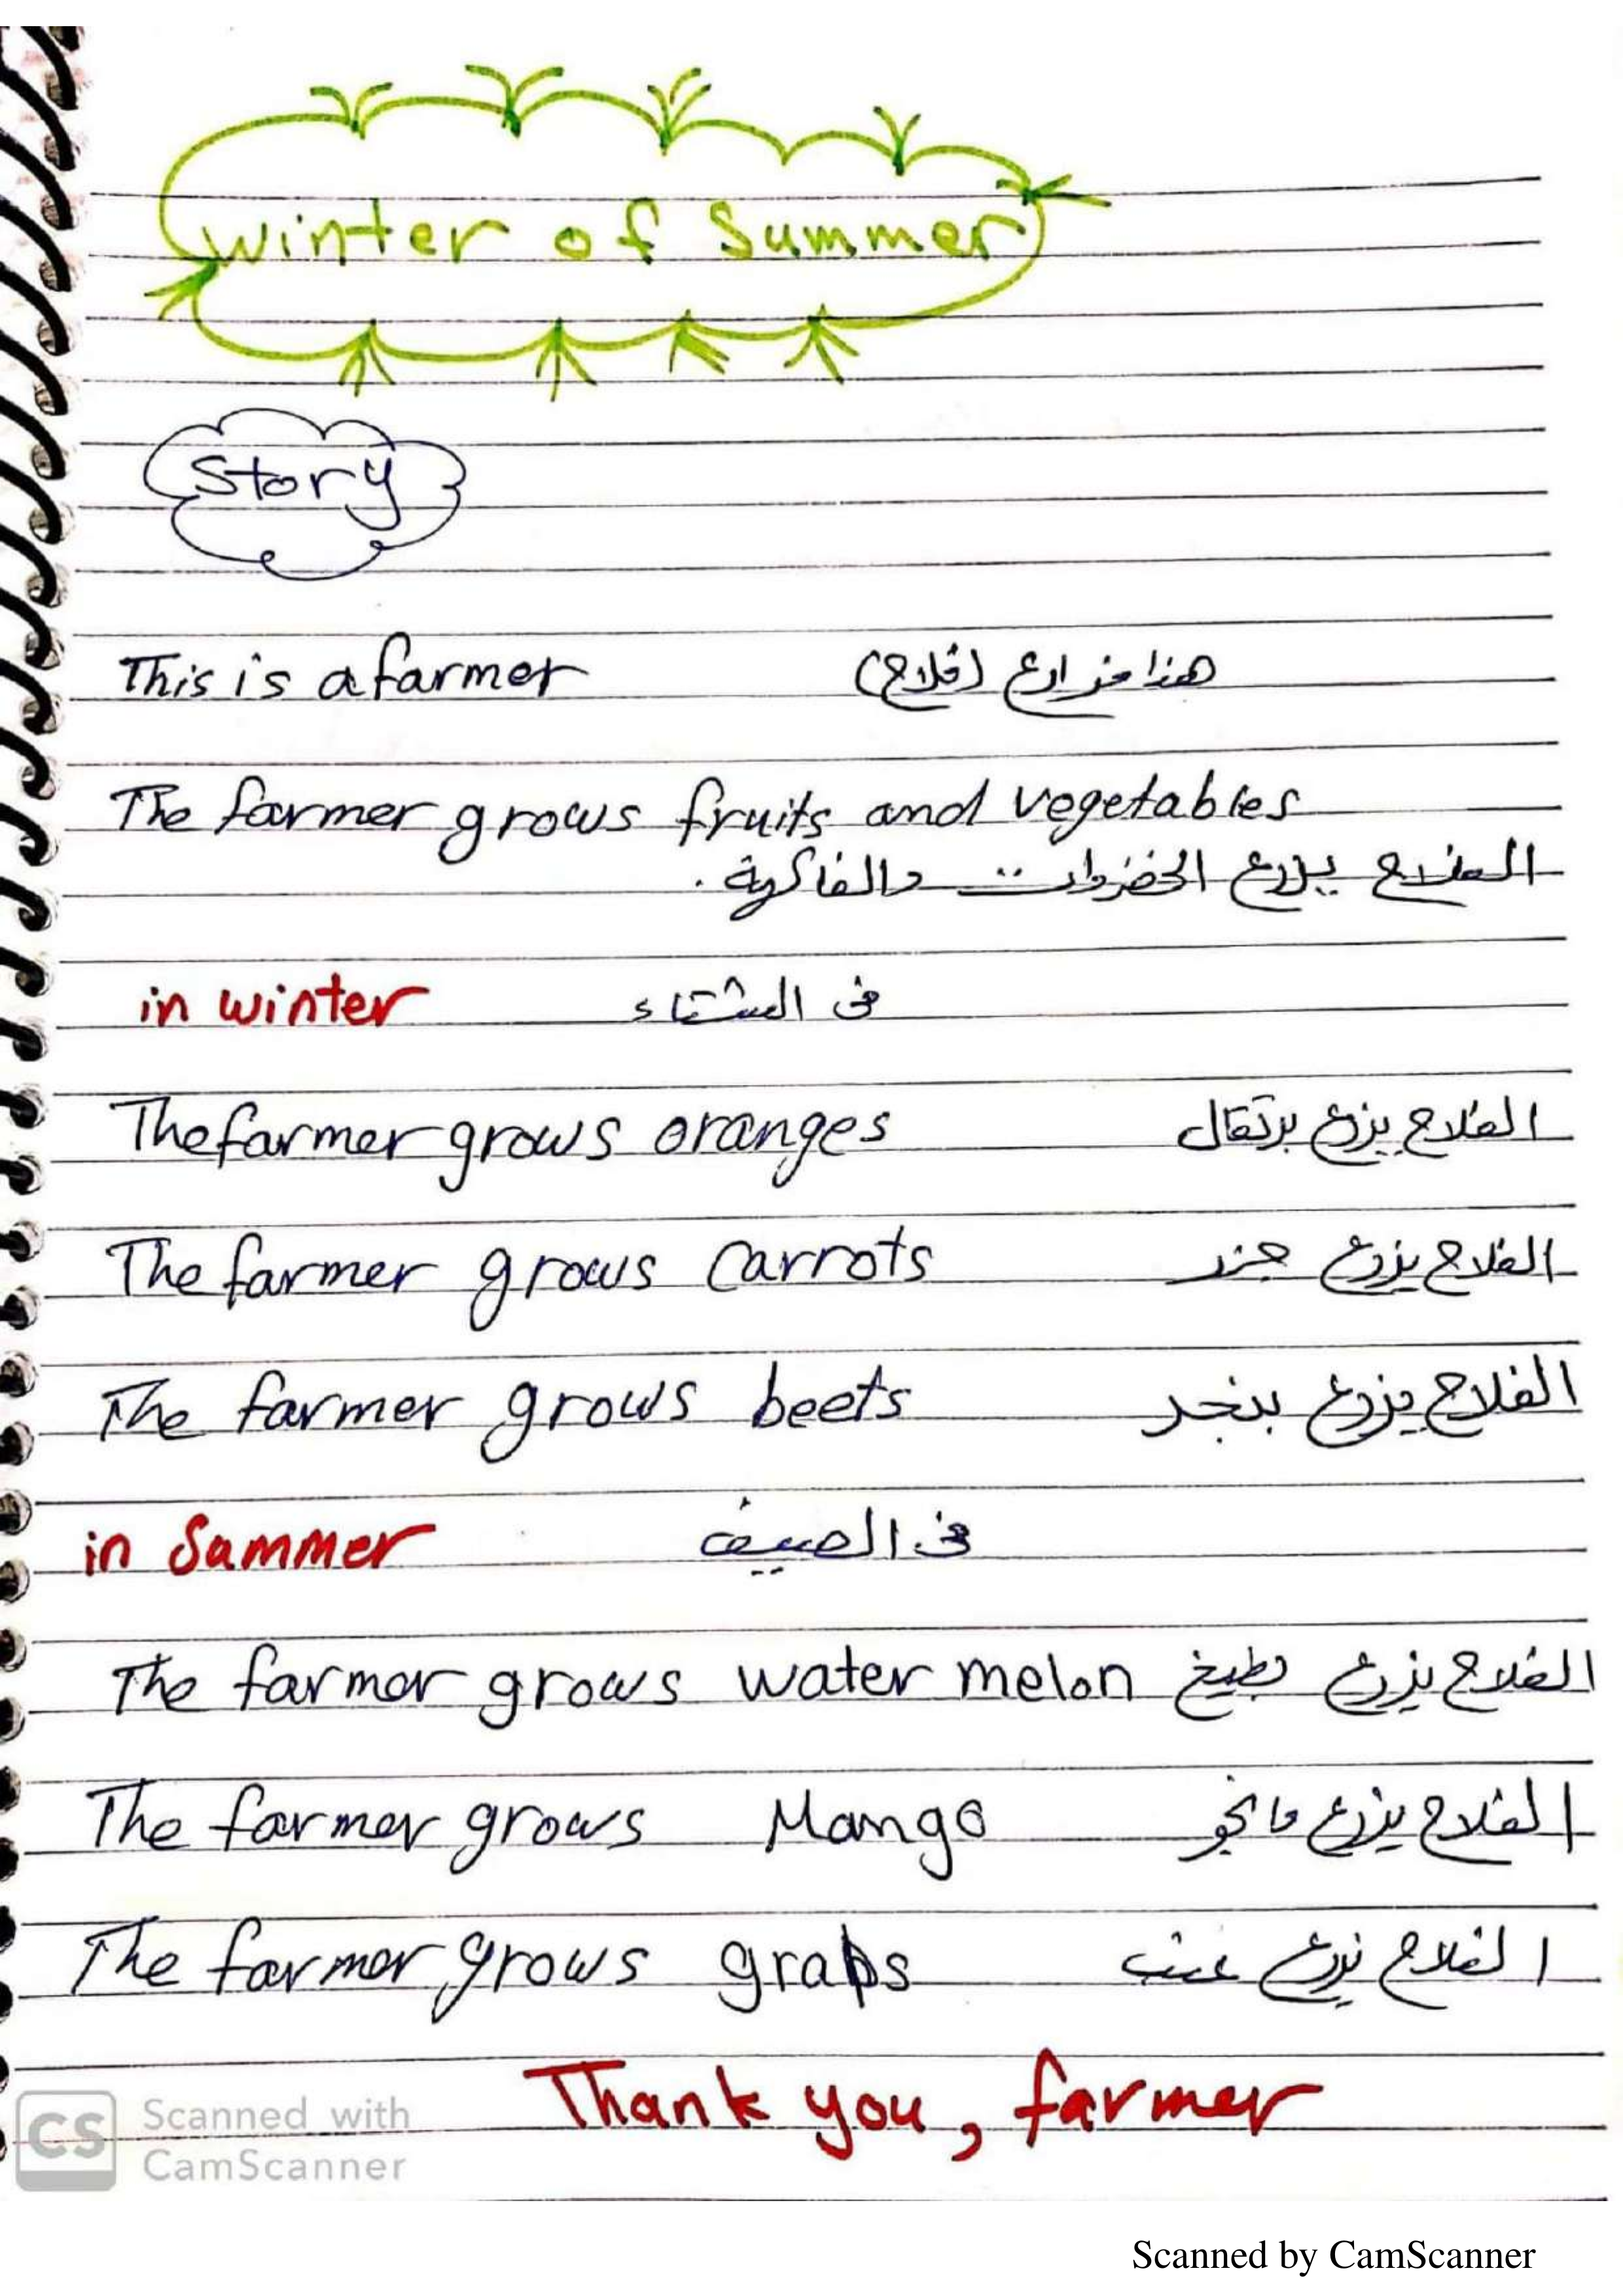 winter of Summer
Story
This is a farmer هذا مزارع (فلاح)
The farmer grows fruits and vegetables
الفلاح يزرع الخضروات والفاكهة .
in winter فى الشتاء
The farmer grows oranges الفلاح يزرع برتقال
The farmer grows Carrots الفلاح يزرع جزر
The farmer grows beets الفلاح يزرع بنجر
in Sammer فى الصيف
The farmer grows water melon الفلاح يزرع بطيخ
The farmer grows Mango الفلاح يزرع مانجو
The farmer grows graps الفلاح يزرع عنب
Thank you, farmer
CS Scanned with
CamScanner
Scanned by CamScanner